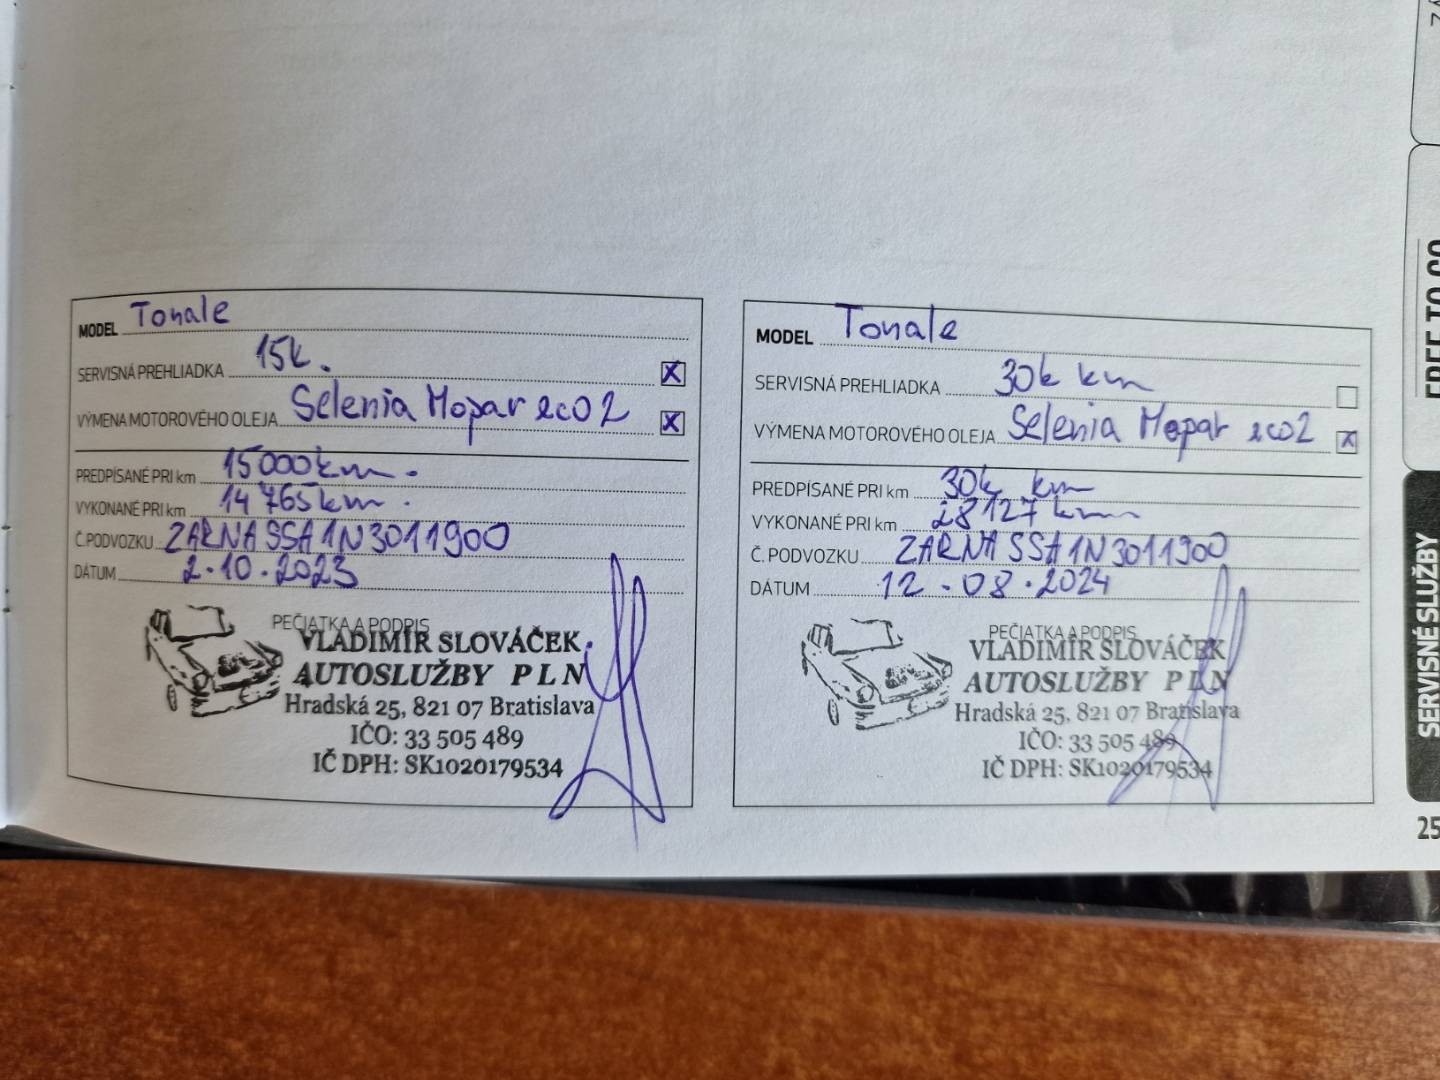 MODEL Tonale
SERVISNÁ PREHLIADKA 15k. X
VÝMENA MOTOROVÉHO OLEJA Selenia Mopar eco2 X
PREDPÍSANÉ PRI km 15000km.
VYKONANÉ PRI km 14765km.
Č.PODVOZKU ZARNASSA1N3011900
DÁTUM 2.10.2023
PEČIATKA A PODPIS
VLADIMÍR SLOVÁČEK
AUTOSLUŽBY PLN
Hradská 25, 821 07 Bratislava
IČO: 33 505 489
IČ DPH: SK1020179534
MODEL Tonale
SERVISNÁ PREHLIADKA 30k km
VÝMENA MOTOROVÉHO OLEJA Selenia Mopar eco2 X
PREDPÍSANÉ PRI km 30k km
VYKONANÉ PRI km 28127km
Č. PODVOZKU ZARNASSA1N3011900
DÁTUM 12.08.2024
PEČIATKA A PODPIS
VLADIMÍR SLOVÁČEK
AUTOSLUŽBY PLN
Hradská 25, 821 07 Bratislava
IČO: 33 505 489
IČ DPH: SK1020179534
FREE TO GO
SERVISNÉ SLUŽBY
25